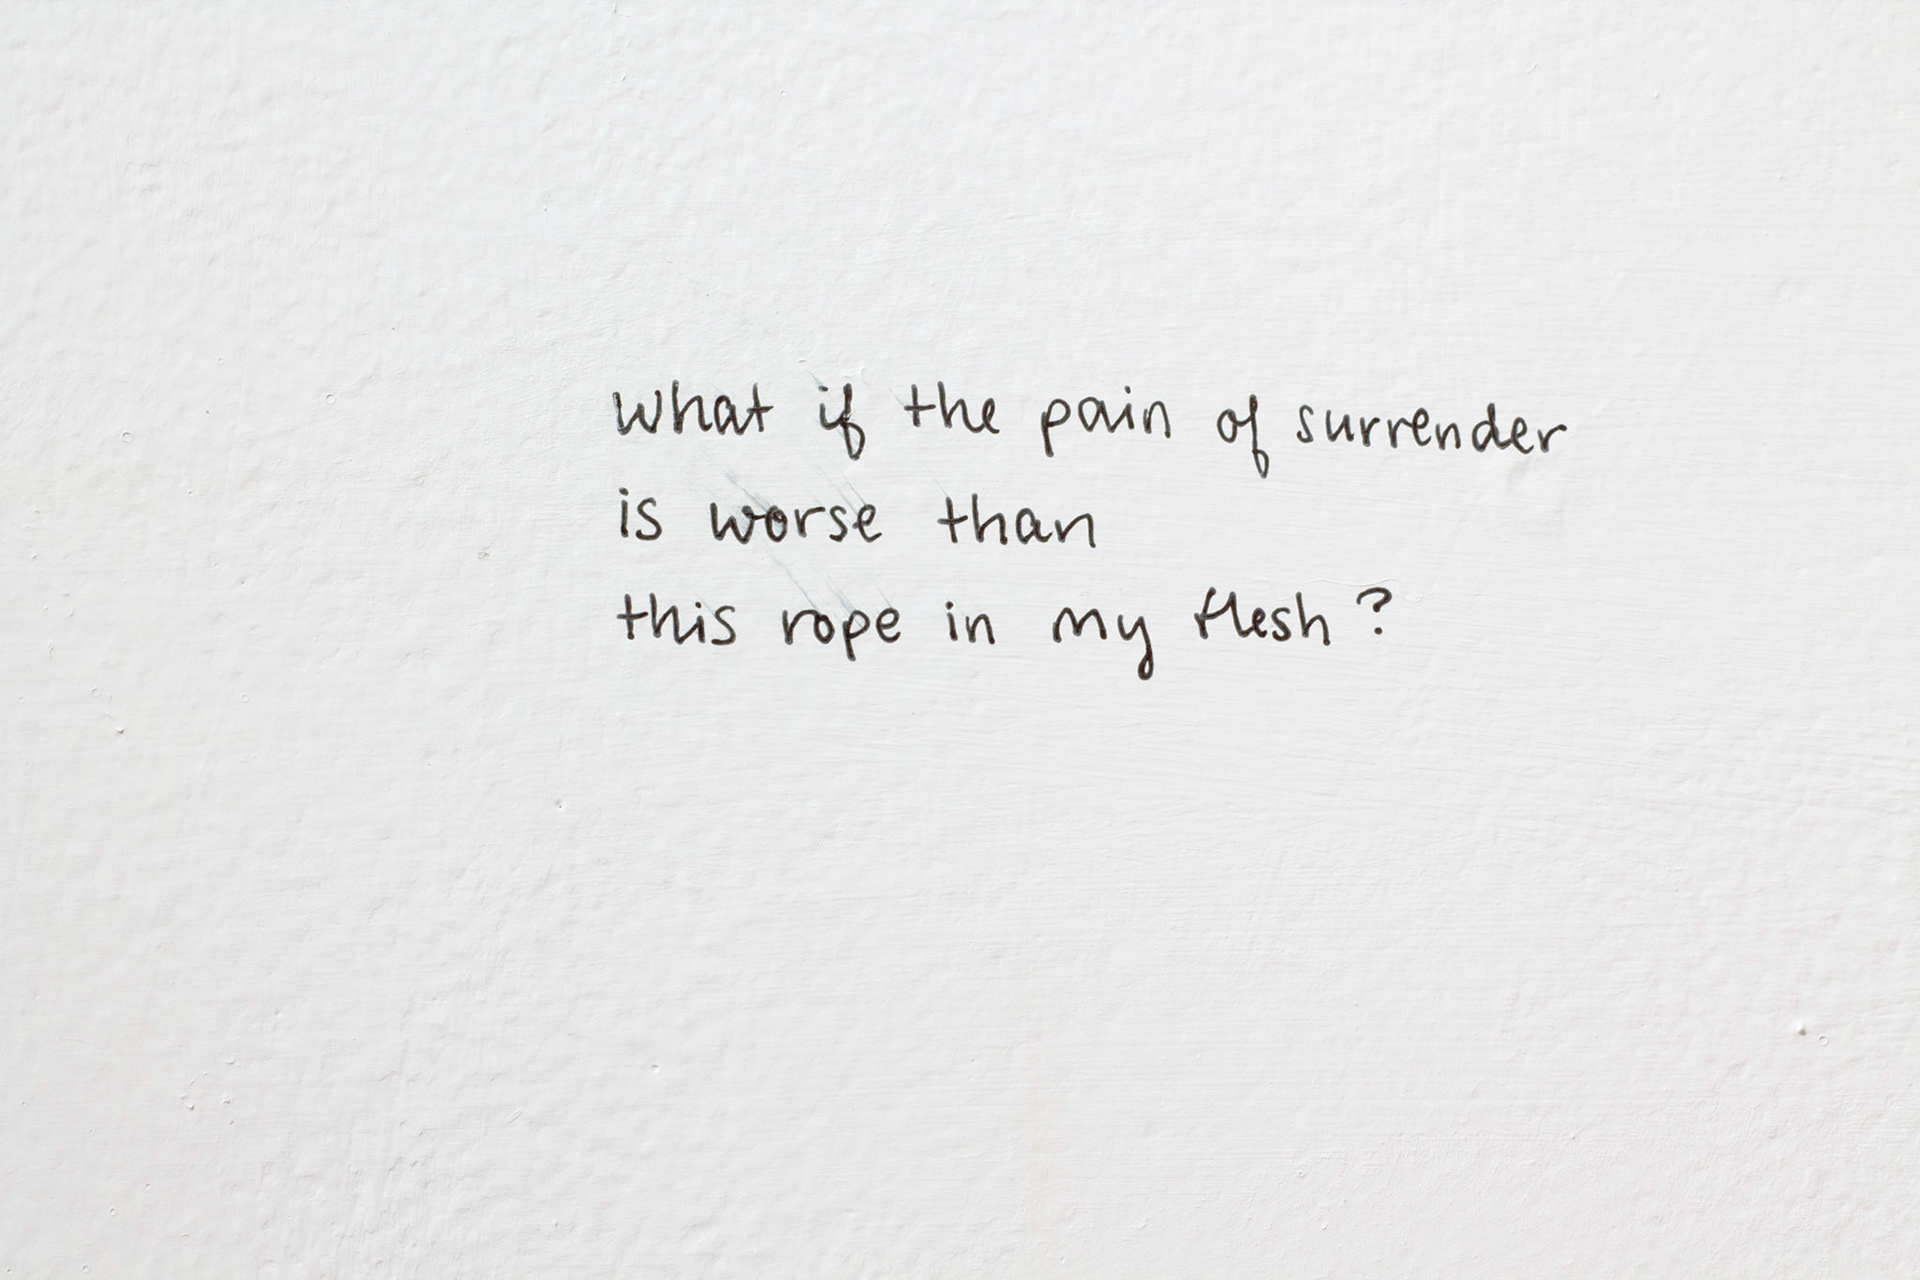 What if the pain of surrender
is worse than
this rope in my flesh?